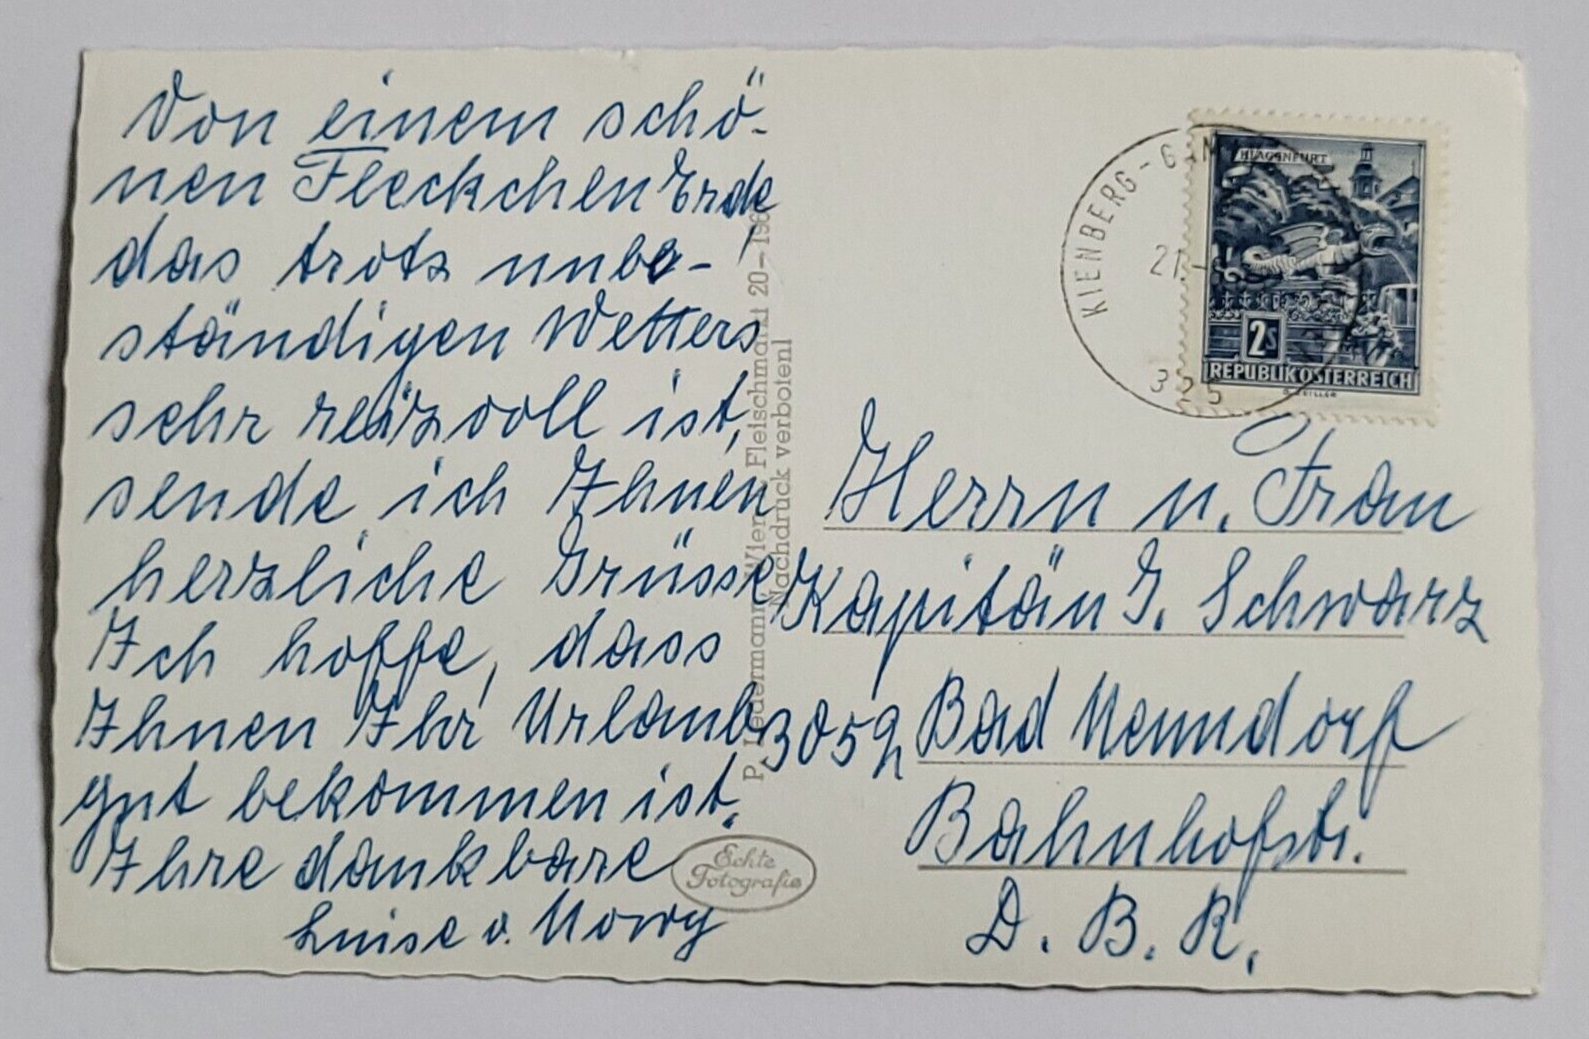 Von einem schö-
nen Fleckchen Erde
das trotz unbe-
ständigen Wetters
sehr reizvoll ist,
sende ich Ihnen
herzliche Grüsse
Ich hoffe, dass
Ihnen Ihr Urlaub
gut bekommen ist.
Ihre dankbare
Luise v.
P. Ledermann, Wien, Fleischmarkt 20 - 196
Nachdruck verboten!
Echte
Fotografie
KIENBERG-
325
KLAGENFURT
2s
REPUBLIK ÖSTERREICH
Herrn u. Frau
Kapitän J. Schwarz
3052 Bad Nenndorf
Bahnhofstr.
D. B. R.